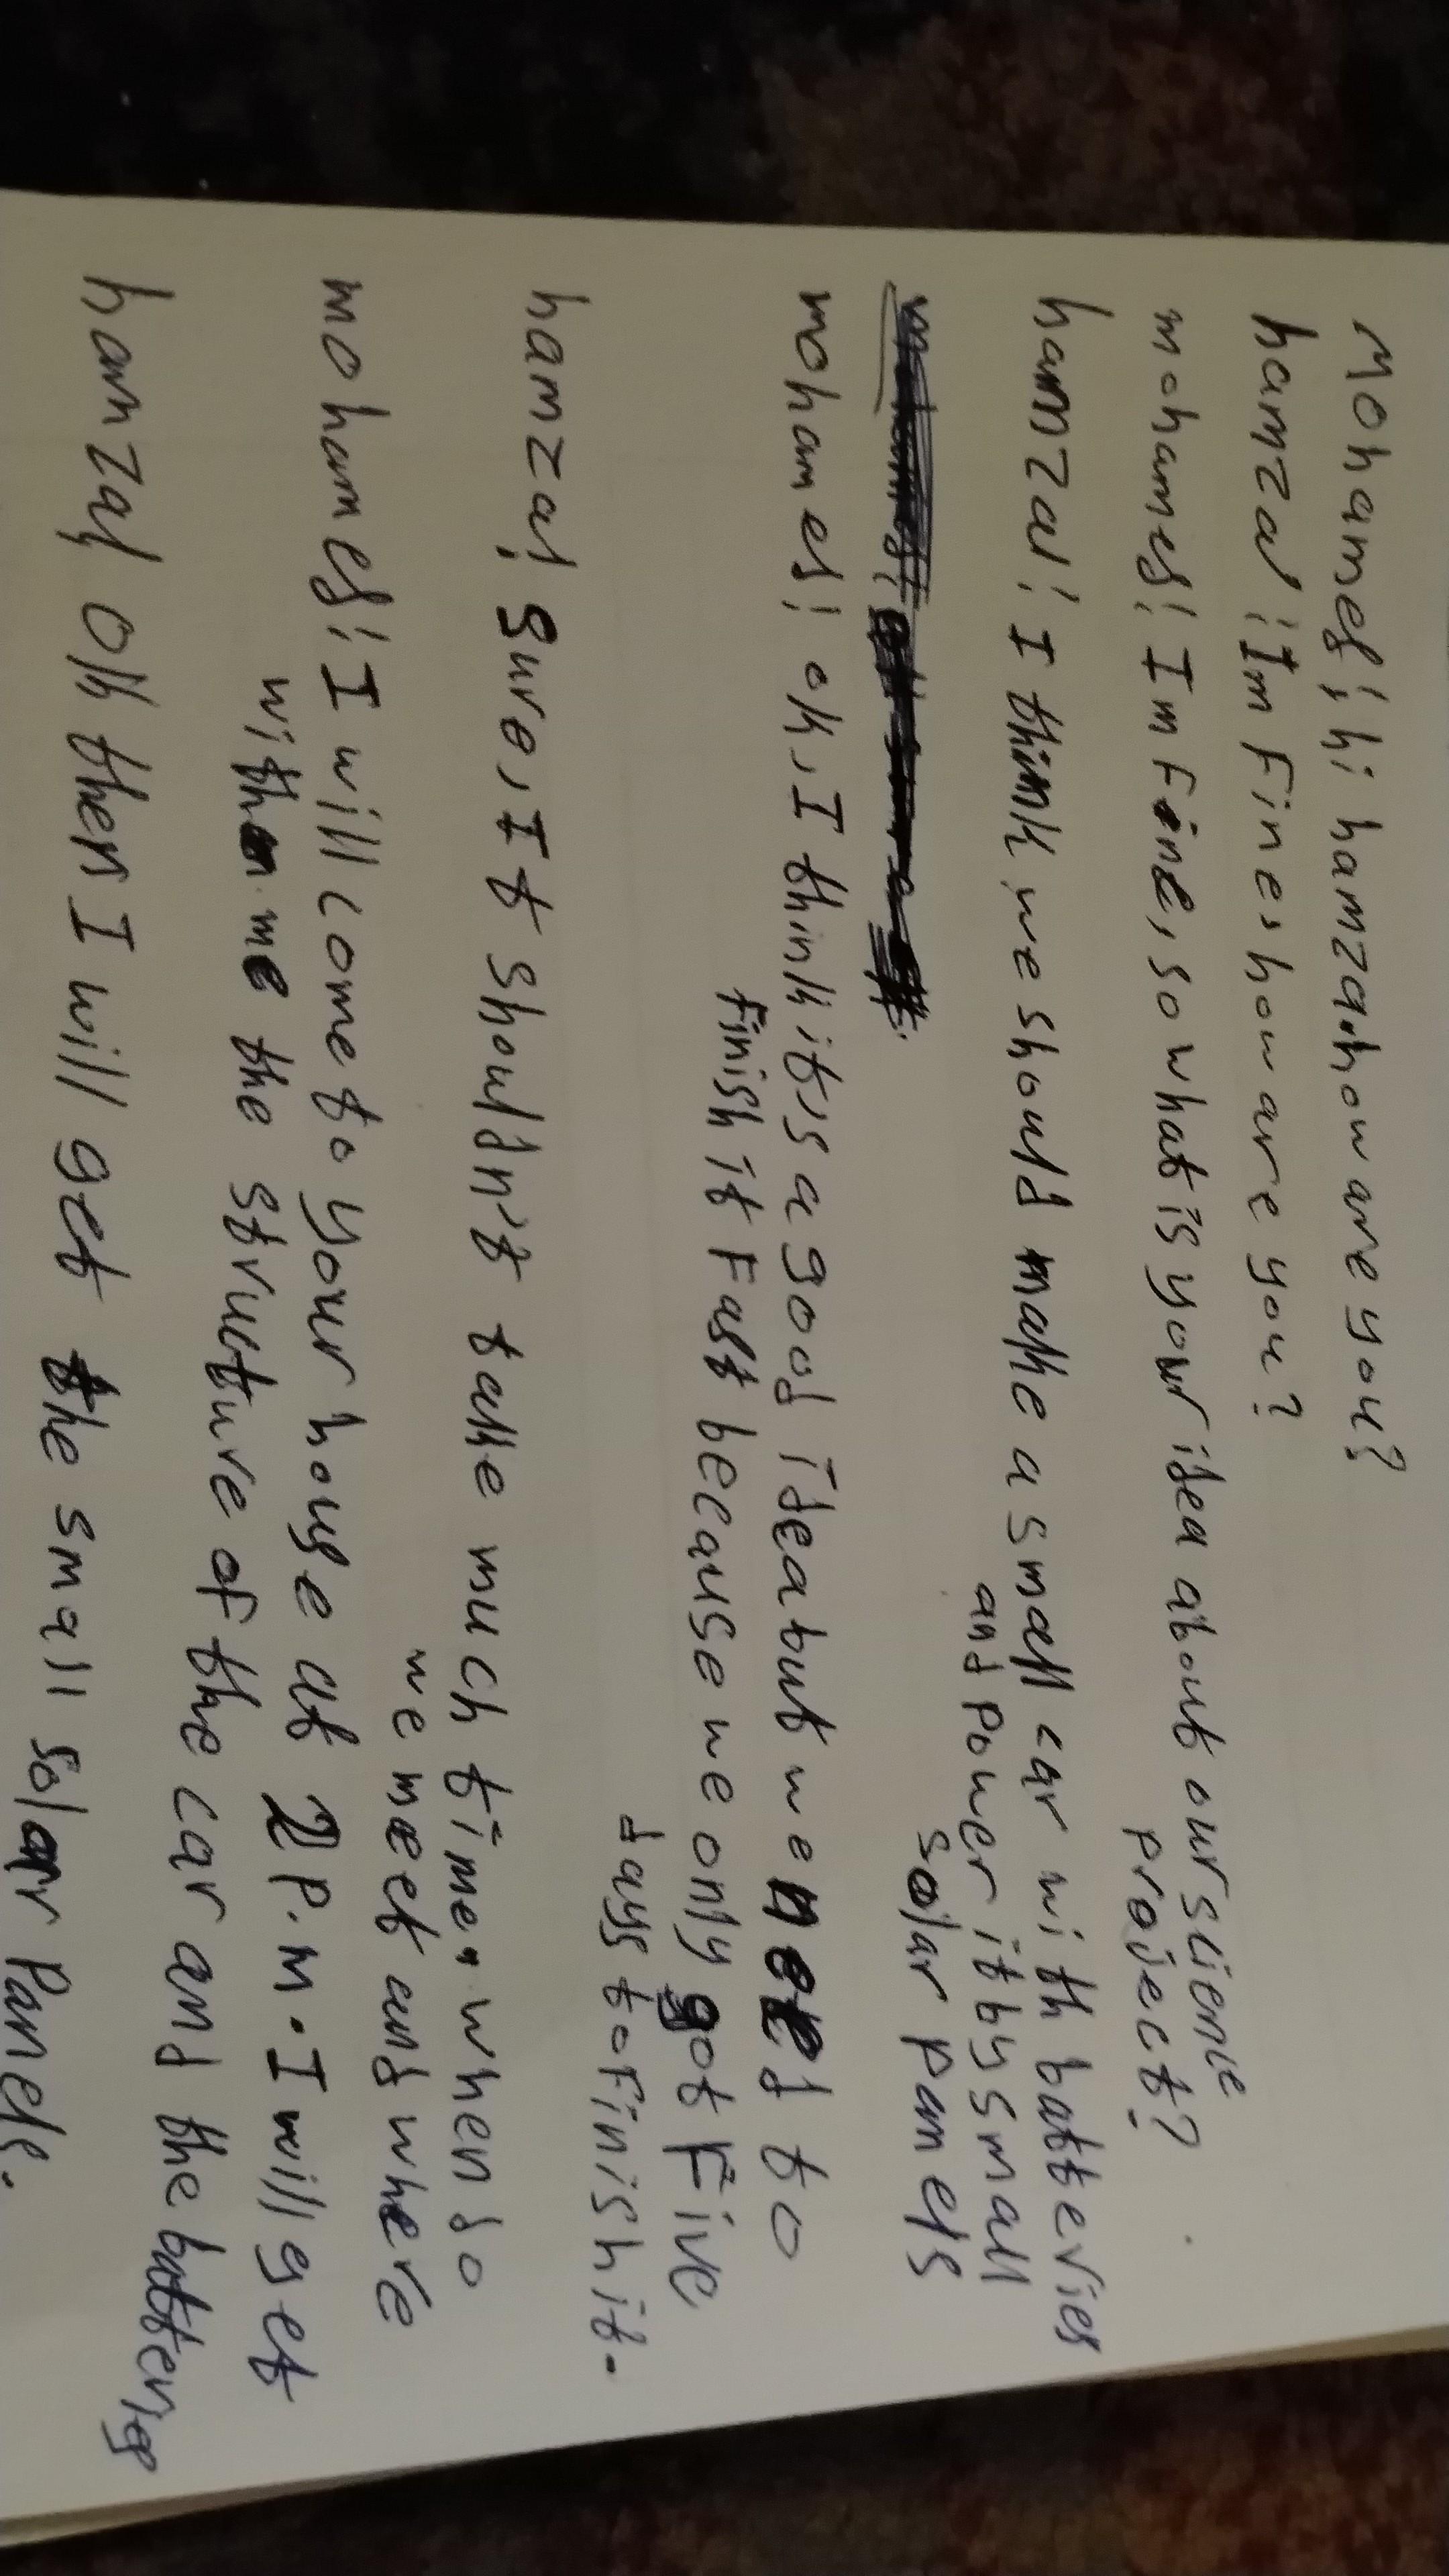 Mohamed: hi hamza. how are you?
hamza: Im Fine, how are you?
mohamed: Im Fine, so what is your idea about our science
project?
hamza: I think we should make a small car with batteries
and power it by small
solar panels
mohamed: ok, I think it's a good idea but we need to
Finish it Fast because we only got Five
days to Finish it.
hamza: Sure, It shouldn't take much time, when do
we meet and where
mohamed: I will come to your house at 2 P.M. I will get
with me the structure of the car and the batteries
hamza: Ok then I will get the small solar Panels.